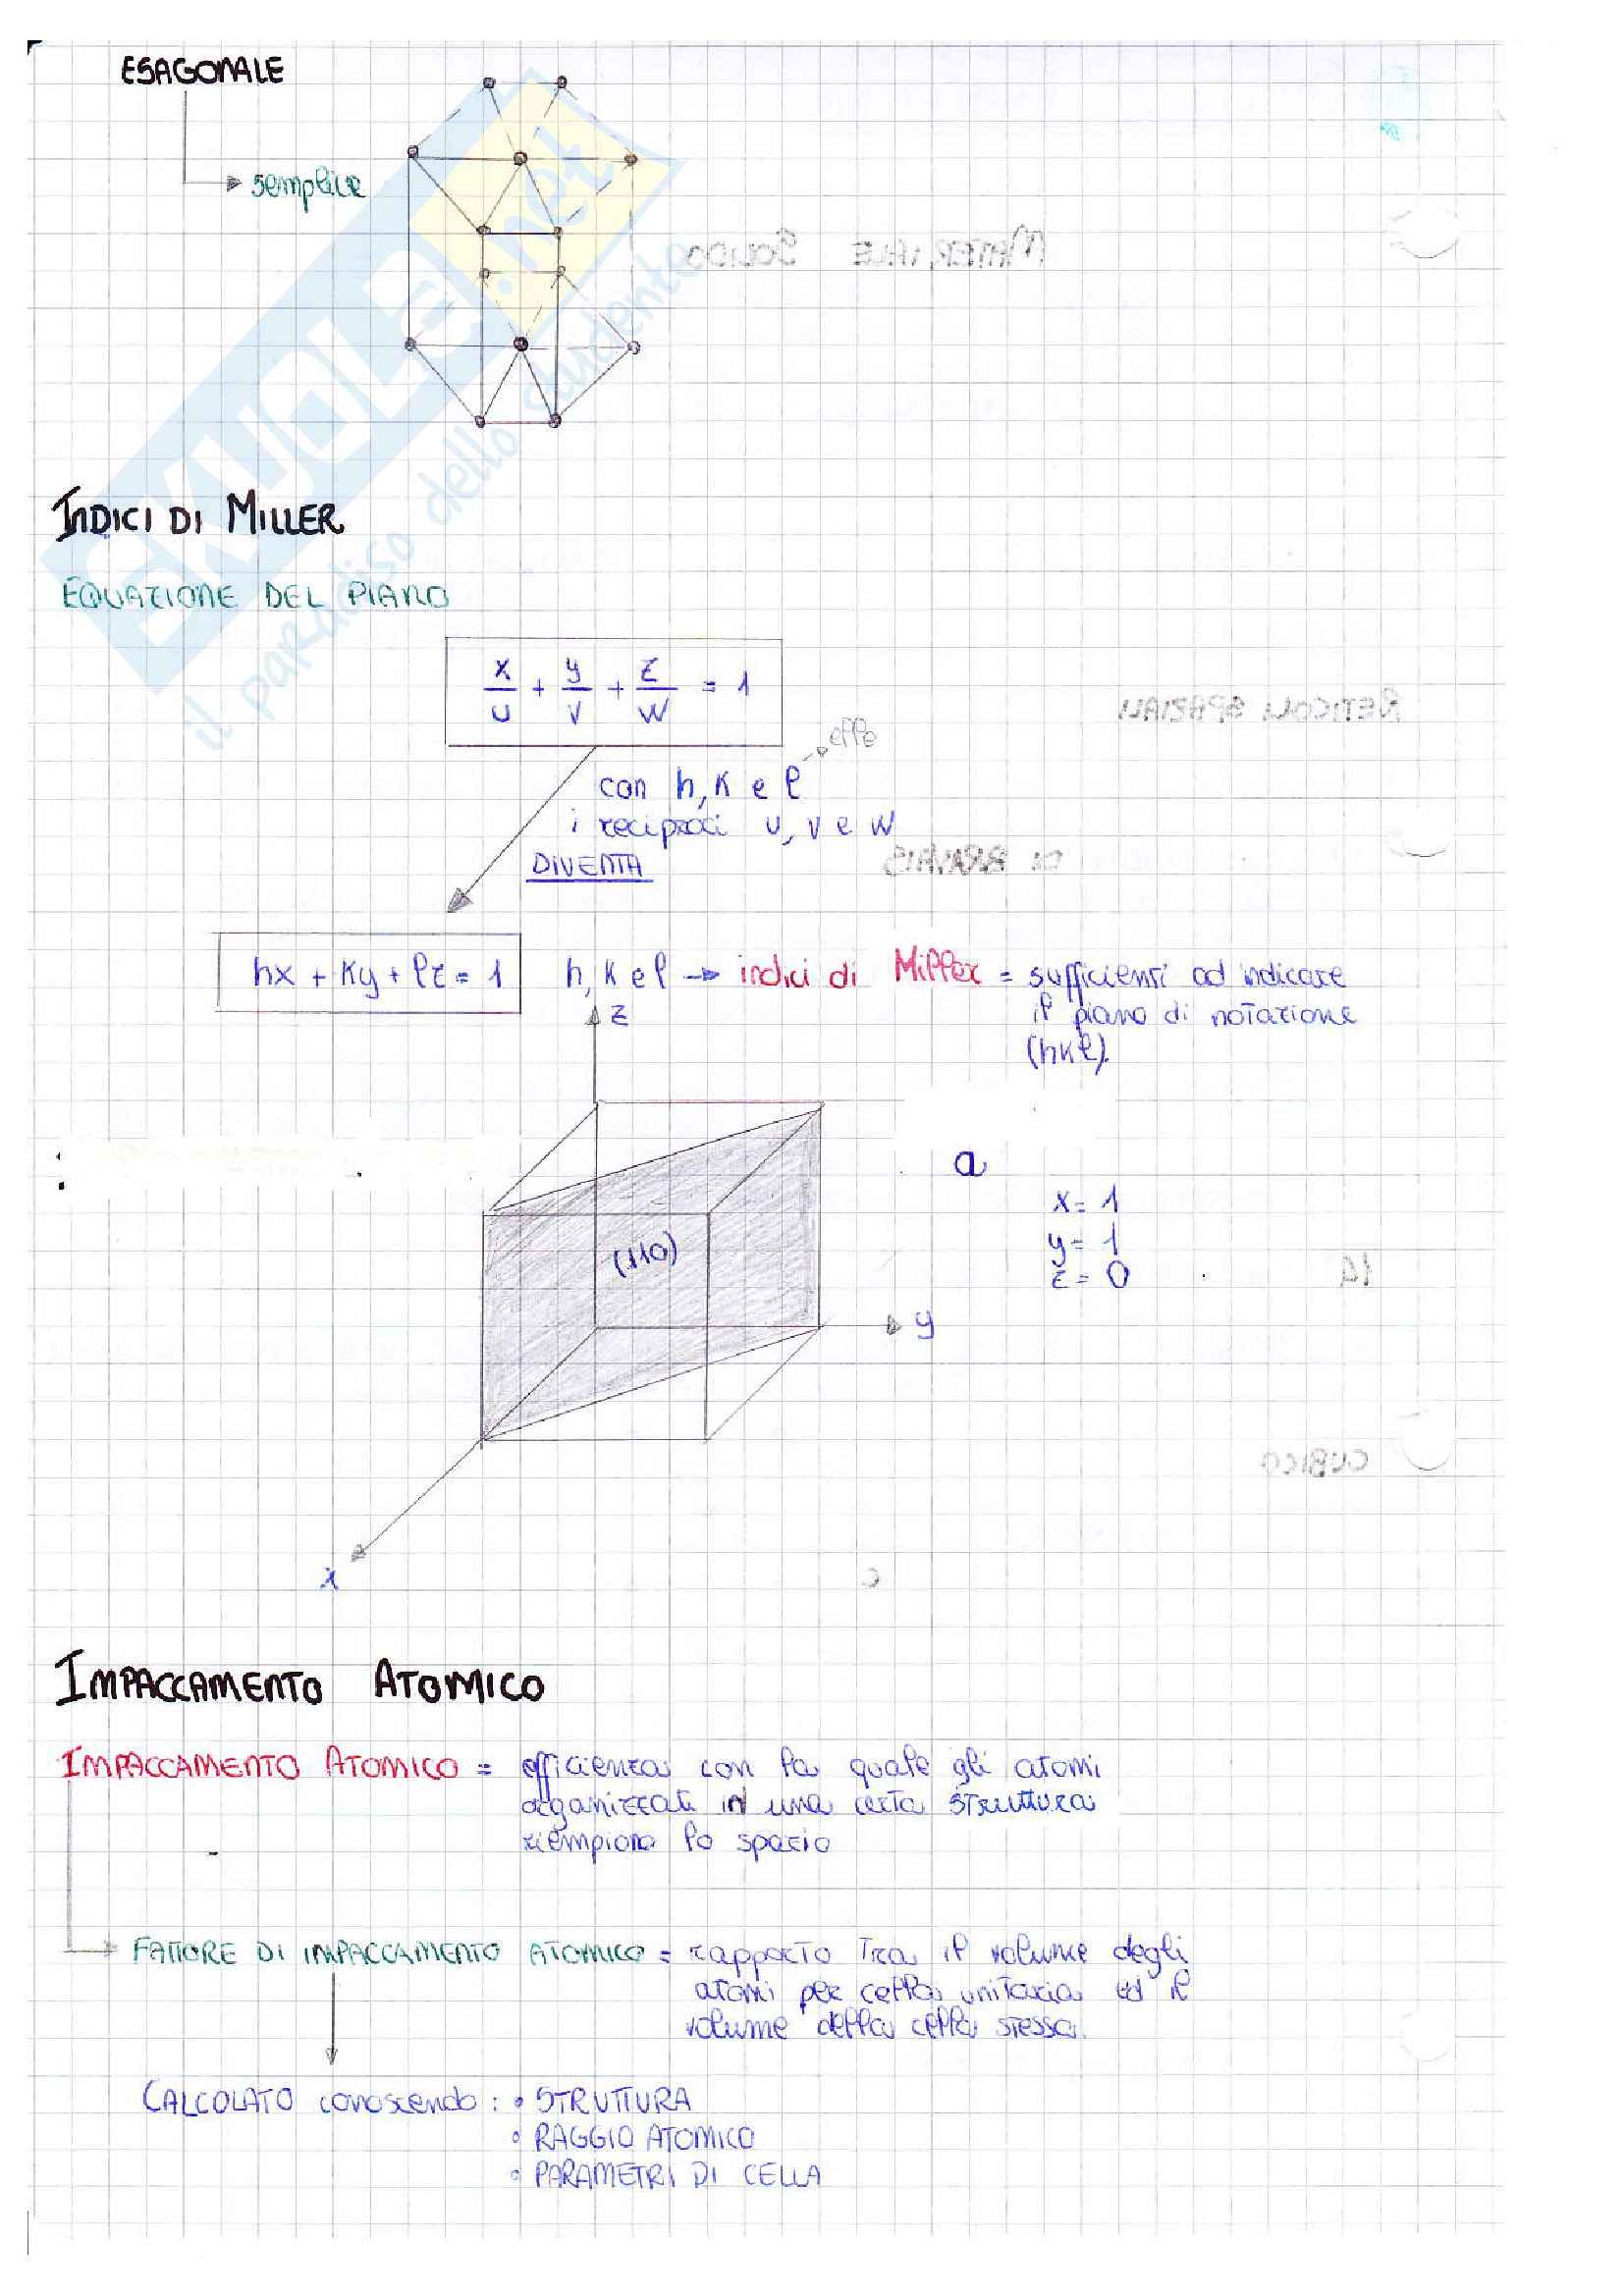 ESAGONALE
semplice
INDICI DI MILLER
EQUAZIONE DEL PIANO
x/u + y/v + z/w = 1
elle
con h, k e l
i reciproci u, v e w
DIVENTA
hx + ky + lz = 1
h, k e l → indici di Miller = sufficienti ad indicare
il piano di notazione
(hkl).
z
a
x = 1
y = 1
z = 0
(110)
y
x
IMPACCAMENTO ATOMICO
IMPACCAMENTO ATOMICO = efficienza con la quale gli atomi
organizzati in una certa struttura
riempiono lo spazio
FATTORE DI IMPACCAMENTO ATOMICO = rapporto tra il volume degli
atomi per cella unitaria ed il
volume della cella stessa.
CALCOLATO conoscendo: • STRUTTURA
• RAGGIO ATOMICO
• PARAMETRI DI CELLA
SKUOLA.net
il paradiso dello studente
MATERIALE SOLIDO
RETICOLI SPAZIALI
DI BRAVAIS
14
CUBICO